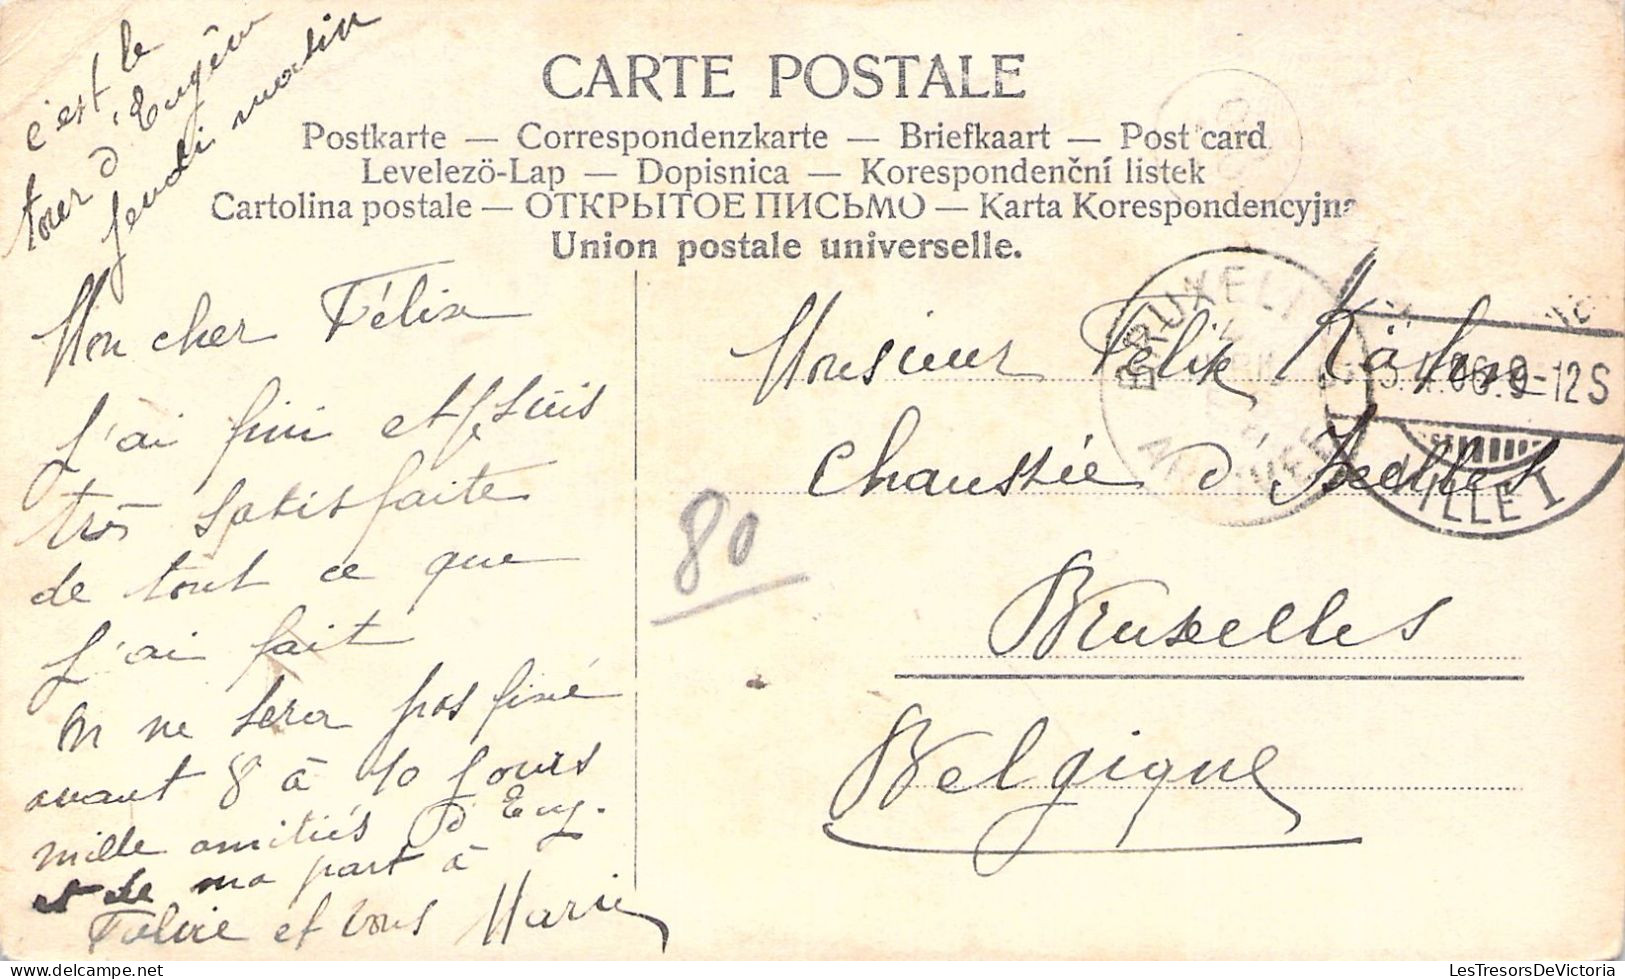 c'est le
tour d'Eugène
jeudi matin
CARTE POSTALE
Postkarte — Correspondenzkarte — Briefkaart — Post card
Levelezö-Lap — Dopisnica — Korespondenční listek
Cartolina postale — ОТКРЫТОЕ ПИСЬМО — Karta Korespondencyjna
Union postale universelle.
Mon cher Félix
J'ai fini et je suis
très satisfaite
de tout ce que
j'ai fait
On ne sera pas fixé
avant 8 à 10 jours
mille amitiés d'Eug.
et de ma part à
et vous Marie
80
BRUXELL
Monsieur Félix Kähn
Chaussée d'Ixelles
Bruxelles
Belgique
06.9-12S
VILLE I
LesTresorsDeVictoria